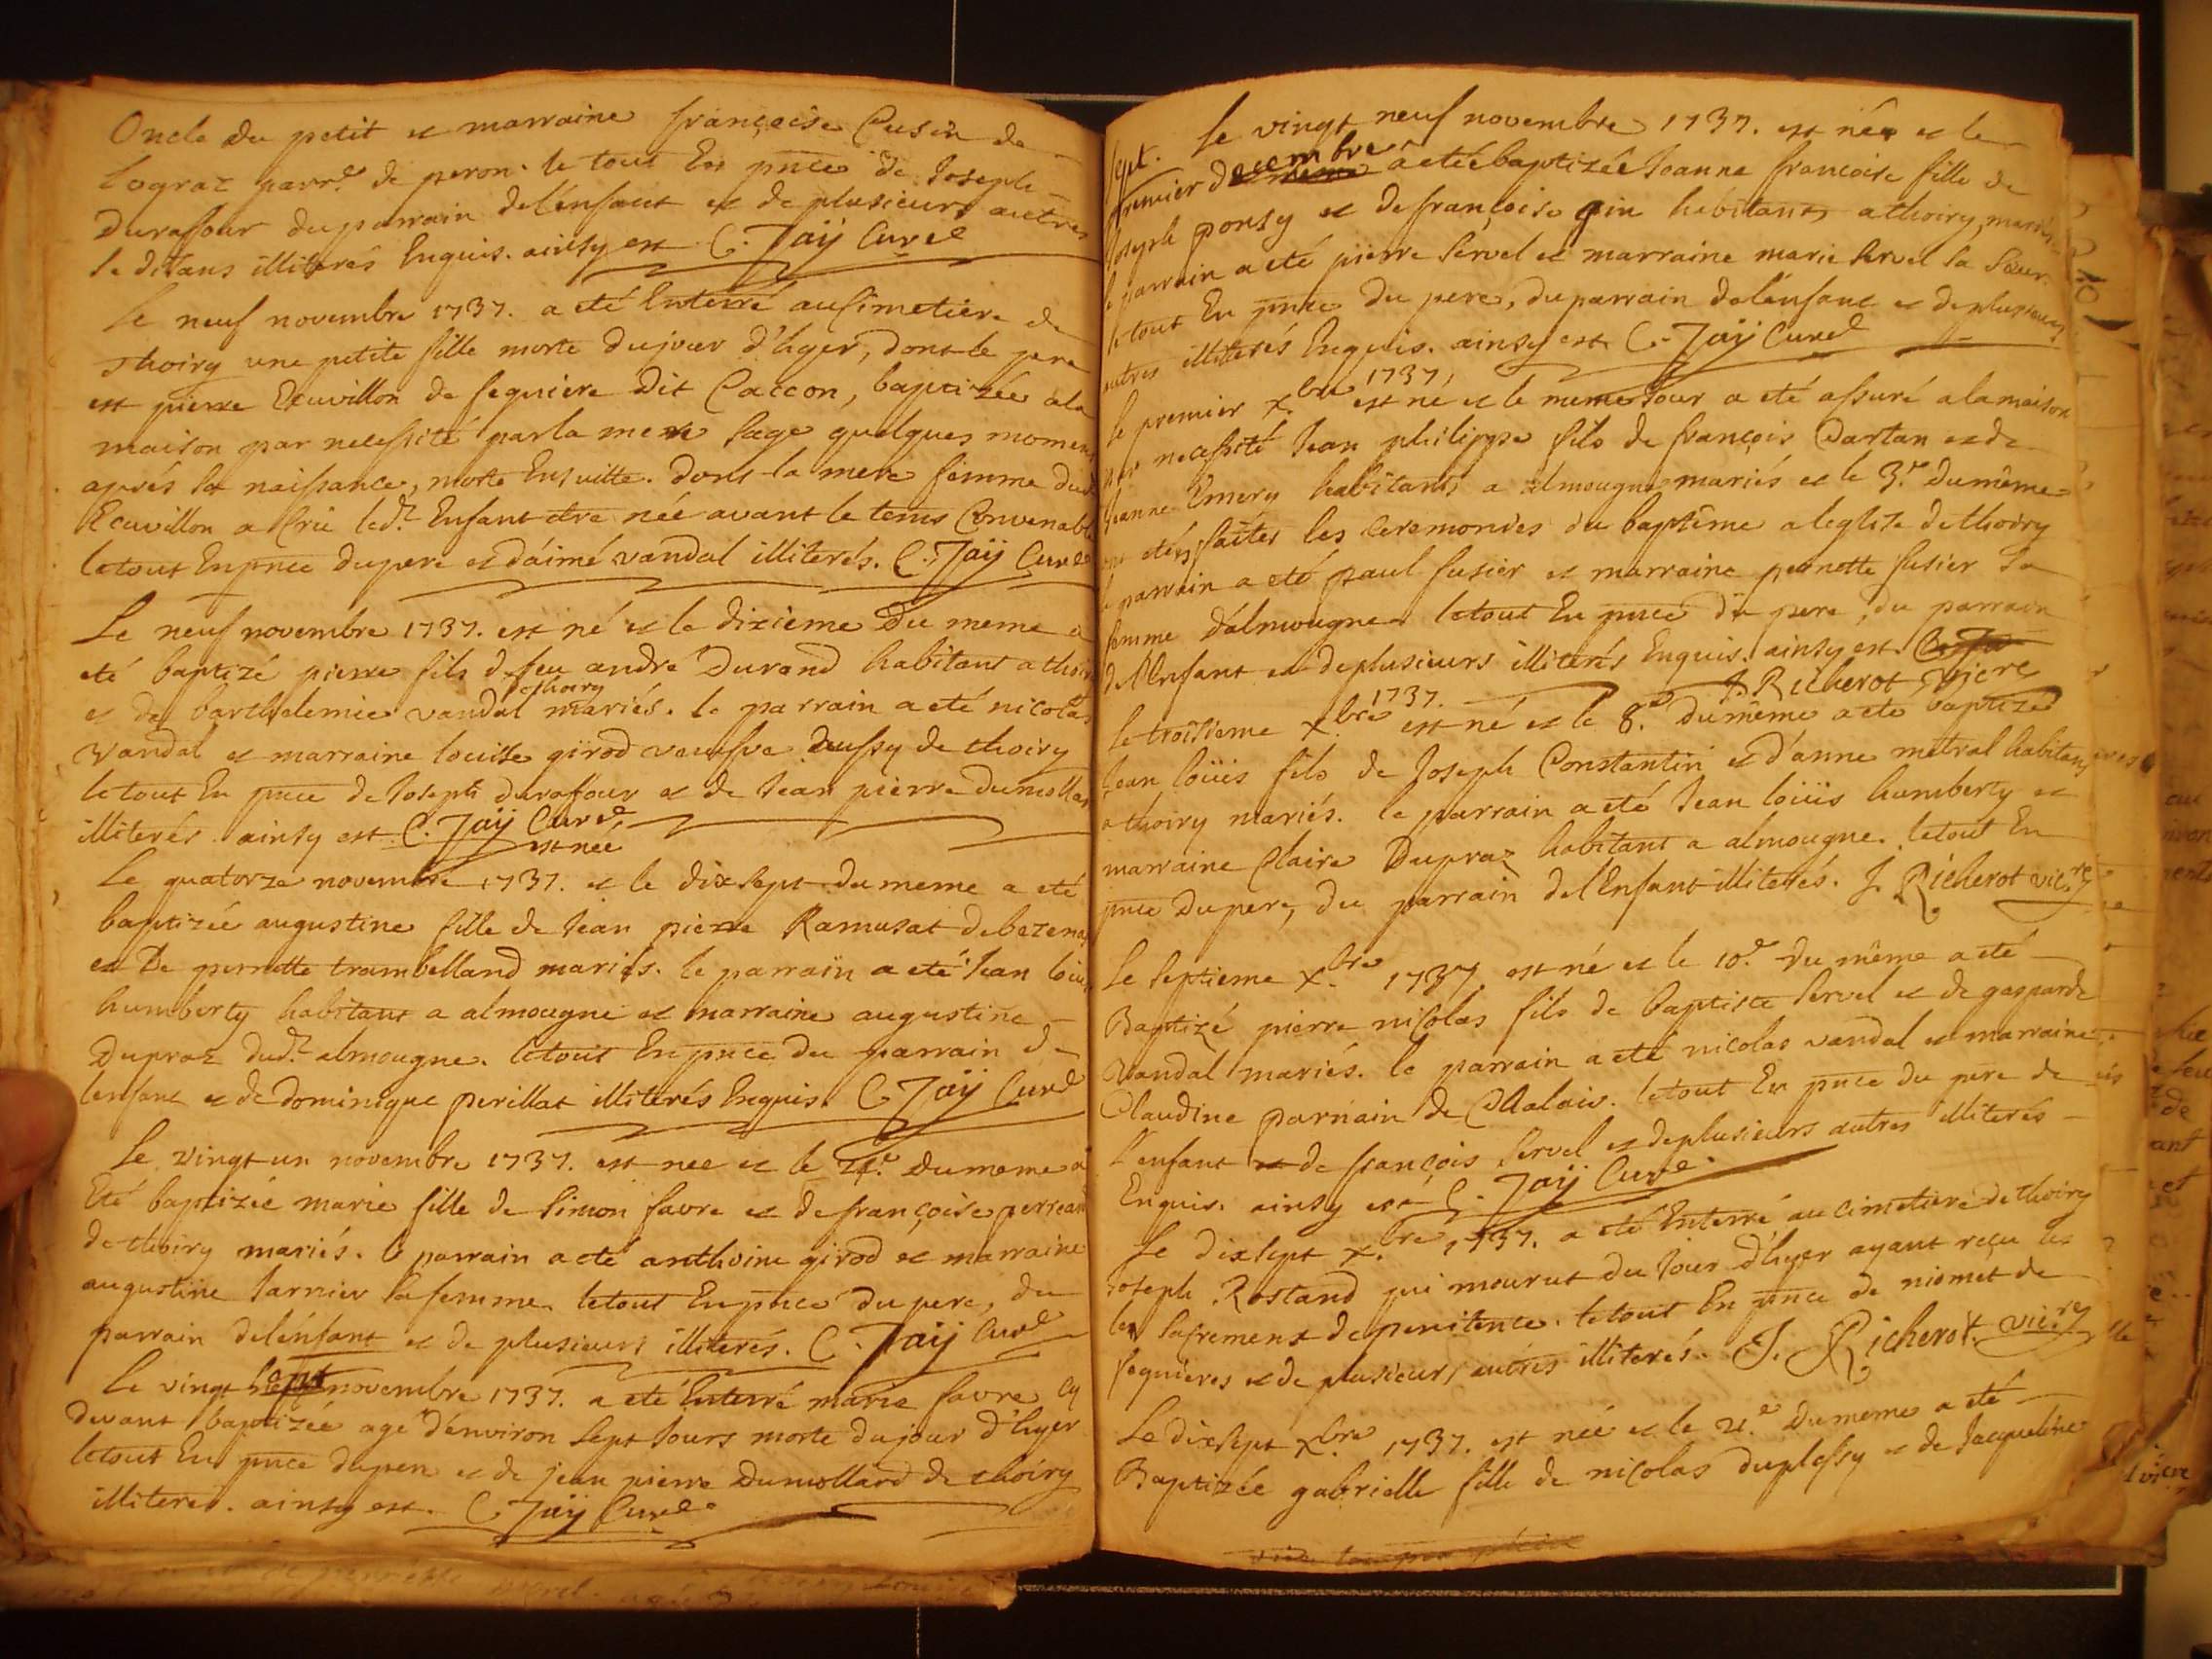 Oncle du petit et marraine françoise Cusin de
Lograz parr.e de peron. le tout En pnce de Joseph
Durafour du parrain de l'enfant et de plusieurs autres
se disans illiterés Enquis. ainsy est C. Jaÿ Curé
Le neuf novembre 1737. a eté Enterré au simetiere de
Thoiry une petite fille morte du jour d'hyer, dont le pere
est pierre Ecuvillon de fequiere dit Caccon, baptizée a la
maison par necessité par la mere sage quelques momens
aprés sa naissance, morte Ensuitte. dont la mere femme dud
Ecuvillon a Crie led.t Enfant etre née avant le tems Convenable
le tout En pnce du pere et d'aimé vandal illiterés. C. Jaÿ Curé
Le neuf novembre 1737. est né et le dixieme Du meme a
eté baptizé pierre fils d feu andré Durand habitant a thoiry
et de barthelemie vandal de thoiry mariés. le parrain a eté nicolas
Vandal et marraine louise girod veusve Dussy de thoiry
le tout En pnce de Joseph durafour et de Jean pierre Dumollar
illiterés. ainsy est C. Jaÿ Curé
Le quatorze novembre 1737. est née et le dix sept du meme a eté
baptizée augustine fille de Jean pierre Ramusat de bezena
et De pernette trambelland mariés. le parrain a eté Jean louis
humberty habitant a almougne et marraine augustine
Dupraz dud.t almougne. le tout En pnce du parrain de
lenfant et de Dominique perillat illiterés Enquis. C. Jaÿ Curé
Le vingt un novembre 1737. est née et le 24.e Du meme a
Eté baptizée marie fille de Simon favre et de françoise perrea
de thoiry mariés. le parrain a eté anthoine girod et marraine
augustine Jarnier sa femme. le tout En pnce Du pere, du
parrain de l'enfant et de plusieurs illiterés. C. Jaÿ Curé
Le vingt sept novembre 1737. a eté Enterré marie favre cy
devant baptizée age d'environ sept Jours morte du jour d'hyer
le tout En pnce du pere et de jean pierre Dumollard de thoiry
illiterés. ainsy est. C. Jaÿ Curé
sept. Le vingt neuf novembre 1737. est née et le
premier decembre a eté baptizée Joanne francoise fille de
Joseph ponsy et de françoise gin habitans a thoiry, mariés
le parrain a eté pierre Servel et marraine marie Servel sa Seur.
le tout En pnce Du pere, du parrain de l'enfant et de plusieurs
autres illiterés Enquis. ainsy est C. Jaÿ Curé
Le premier x.bre 1737, est né et le meme Jour a eté assuré a la maison
par necessité Jean philippe fils de françois Dartan et de
Jeanne Emery habitants a almougne mariés et le 3.e du même
ont etés faites les ceremonies du baptême a leglize de thoiry
le parrain a eté paul fusier et marraine pernette fusier sa
femme d'almougne le tout En pnce du pere, du parrain
de l'Enfant et de plusieurs illiterés Enquis. ainsy est.
J. Richerot vicre
Le troisieme x.bre 1737. est né et le 8.e du même a eté baptizé
Jean loüis fils de Joseph Constantin et d'anne metral habitans
a thoiry mariés. le parrain a eté Jean loüis humberty et
marraine Claire Dupraz habitant a almougne. le tout En
pnce Du pere, du parrain de l'Enfant illiterés. J. Richerot vic.re
Le septieme x.bre 1737. est né et le 10.e Du même a eté
Baptizé pierre nicolas fils de baptiste Servel et de gasparde
Vandal mariés. le parrain a eté nicolas vandal et marraine
Claudine parnain de Chalais. le tout En pnce du pere de
l'enfant et de françois Servel et de plusieurs autres illiterés
Enquis. ainsy est C. Jaÿ Curé
Le dixsept x.bre 1737. a eté Enterré au cimetiere de thoiry
Joseph Rostand qui mourut du Jour d'hyer ayant reçu les
les sacremens de penitence. le tout En pnce de niomet de
fequieres et de plusieurs autres illiterés. J. Richerot. vic.re
Le dixsept x.bre 1737. est née et le 21.e Du meme a eté
Baptizée gabrielle fille de nicolas duplessy et de Jacqueline